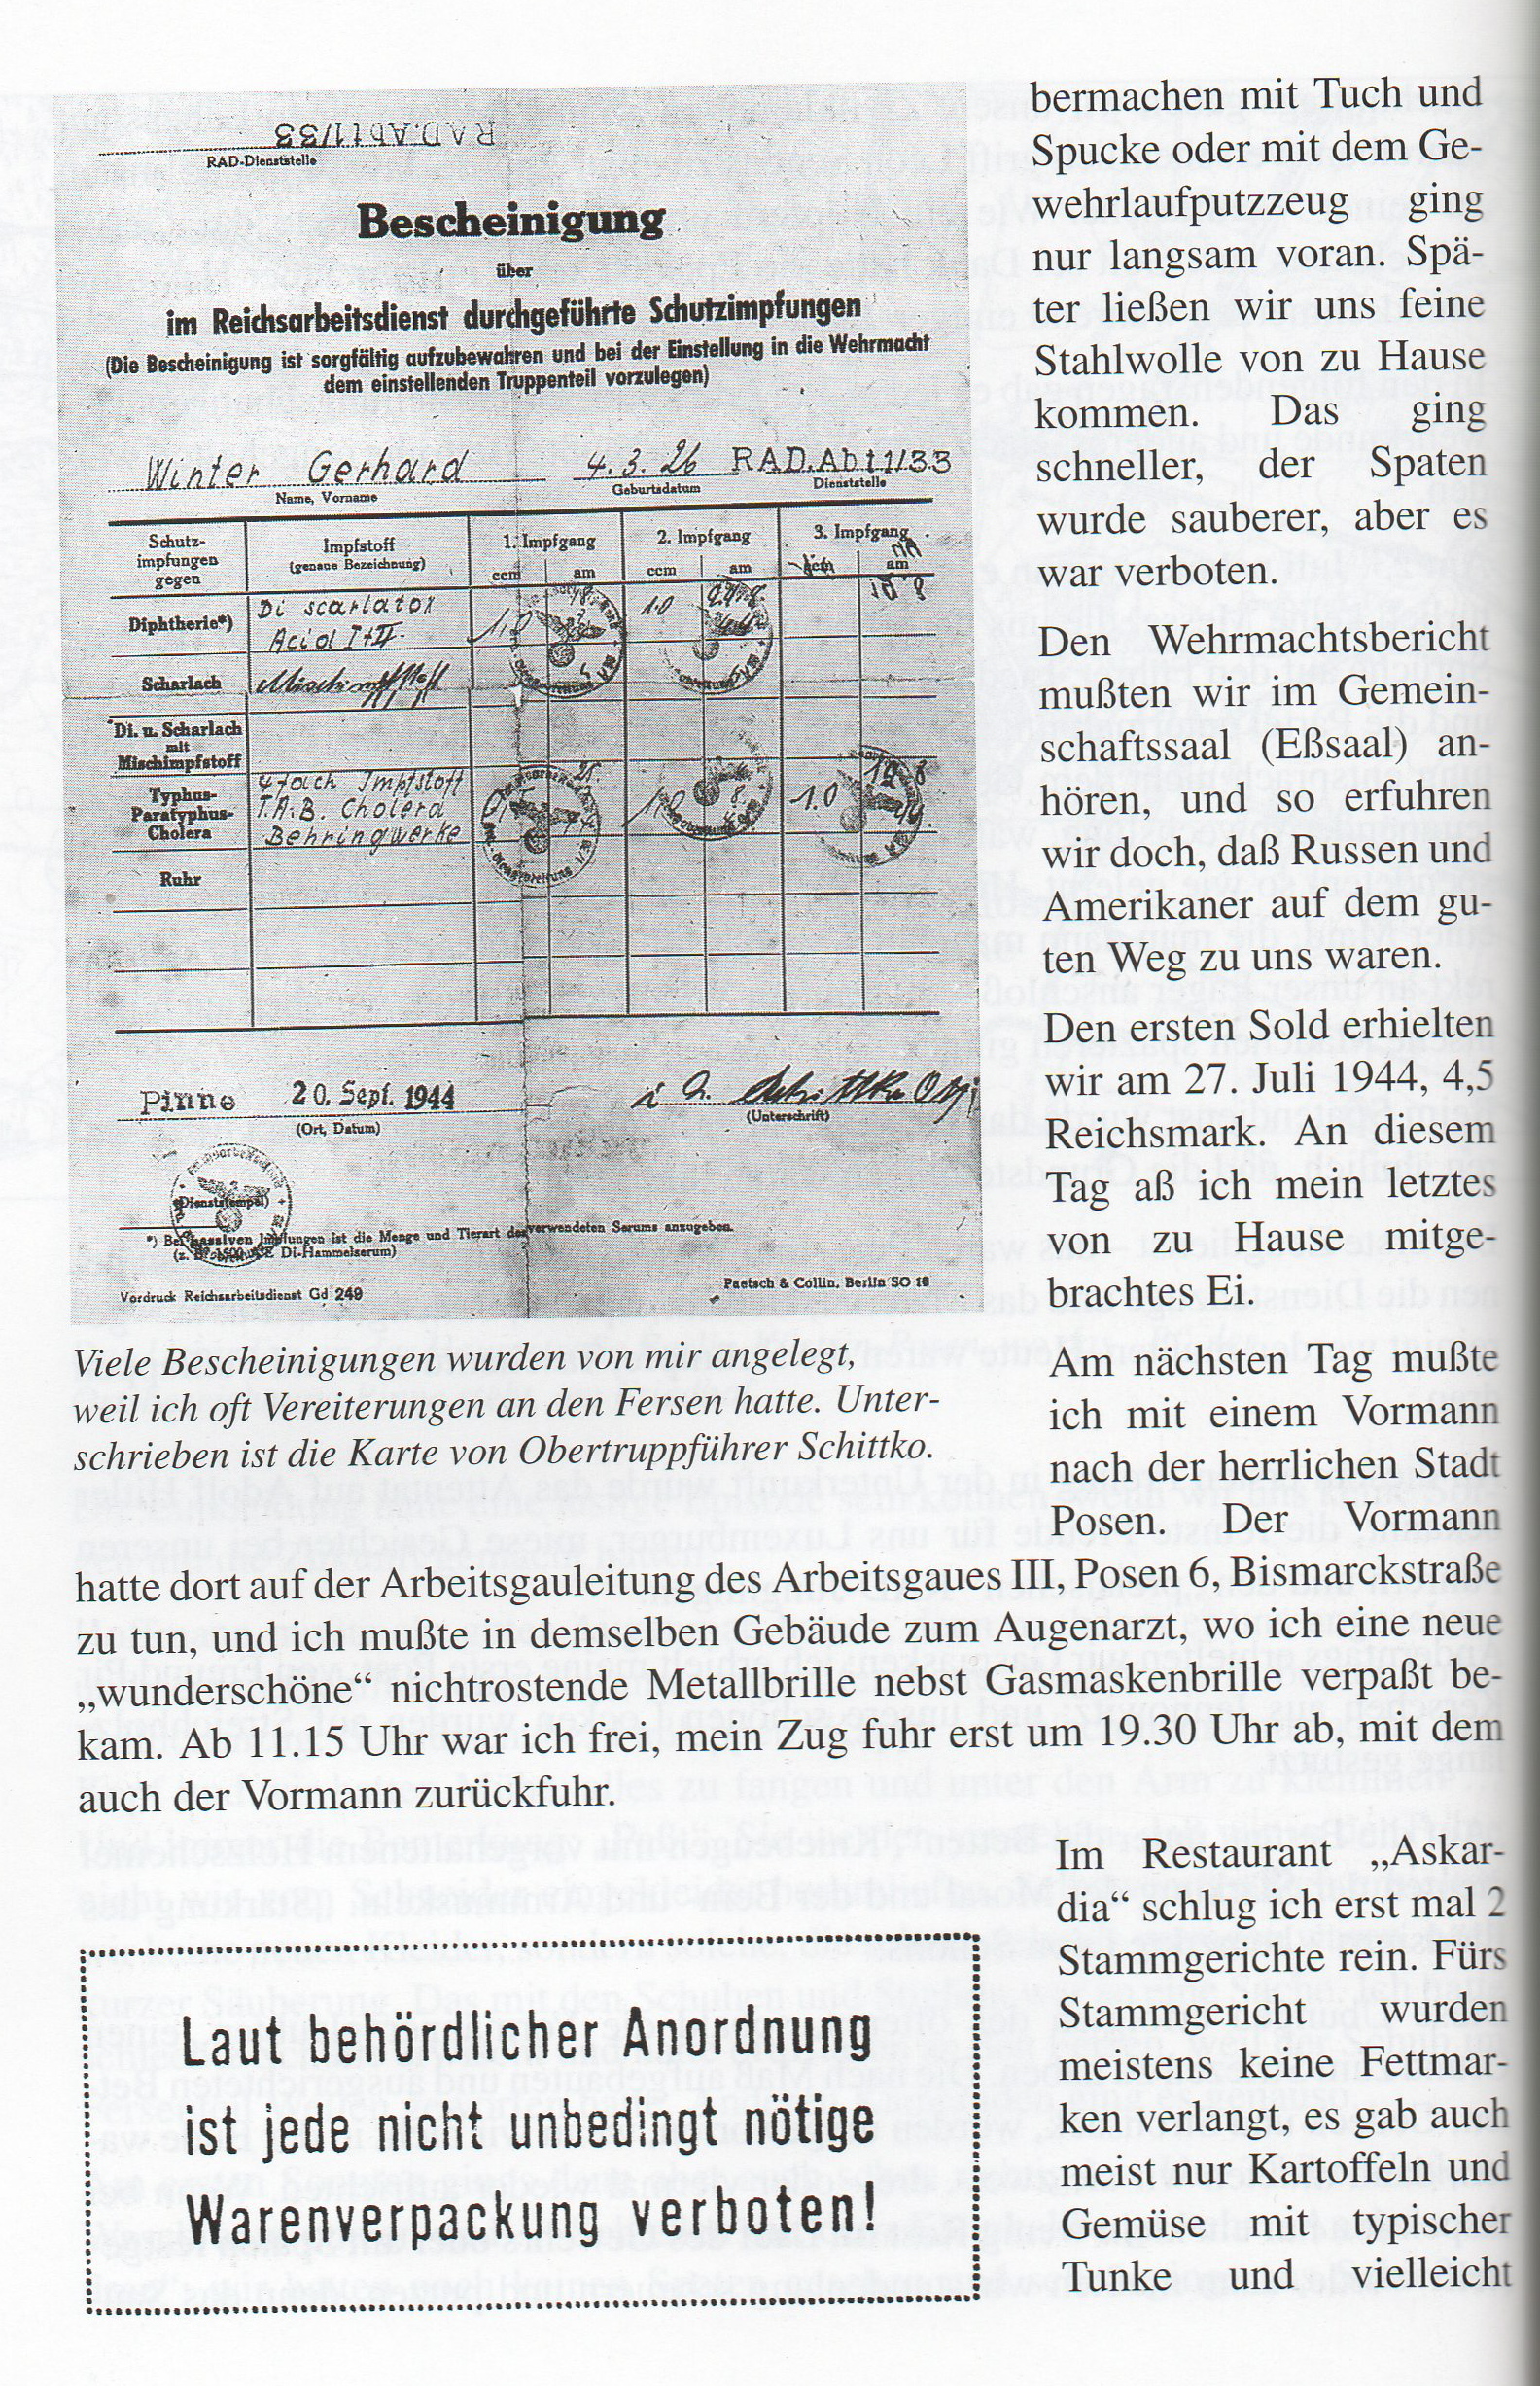 RAD.Abt 1/33
RAD-Dienststelle
Bescheinigung
über
im Reichsarbeitsdienst durchgeführte Schutzimpfungen
(Die Bescheinigung ist sorgfältig aufzubewahren und bei der Einstellung in die Wehrmacht
dem einstellenden Truppenteil vorzulegen)
Winter Gerhard 4.3.26 RAD.Abt 1/33
Name, Vorname Geburtsdatum Dienststelle
Schutz-
impfungen
gegen
Impfstoff
(genaue Bezeichnung)
1. Impfgang
2. Impfgang
3. Impfgang
ccm am ccm am ccm am
Diphtherie*)
Di scarlatox
Acid I+II.
1,0
1.0
Scharlach
Mischimpfstoff
Di. u. Scharlach
mit
Mischimpfstoff
Typhus-
Paratyphus-
Cholera
4fach Impfstoff
T.A.B. Cholera
Behringwerke
1.0
1.0
Ruhr
Pinne 20. Sept. 1944
(Ort, Datum)
(Unterschrift)
(Dienststempel)
*) Bei passiven Impfungen ist die Menge und Tierart des verwendeten Serums anzugeben.
(z. B. 1500 A.E. Di-Hammelserum)
Vordruck Reichsarbeitsdienst Gd 249
Paetsch & Collin, Berlin SO 16
Viele Bescheinigungen wurden von mir angelegt,
weil ich oft Vereiterungen an den Fersen hatte. Unter-
schrieben ist die Karte von Obertruppführer Schittko.
bermachen mit Tuch und
Spucke oder mit dem Ge-
wehrlaufputzzeug ging
nur langsam voran. Spä-
ter ließen wir uns feine
Stahlwolle von zu Hause
kommen. Das ging
schneller, der Spaten
wurde sauberer, aber es
war verboten.
Den Wehrmachtsbericht
mußten wir im Gemein-
schaftssaal (Eßsaal) an-
hören, und so erfuhren
wir doch, daß Russen und
Amerikaner auf dem gu-
ten Weg zu uns waren.
Den ersten Sold erhielten
wir am 27. Juli 1944, 4,5
Reichsmark. An diesem
Tag aß ich mein letztes
von zu Hause mitge-
brachtes Ei.
Am nächsten Tag mußte
ich mit einem Vormann
nach der herrlichen Stadt
Posen. Der Vormann
hatte dort auf der Arbeitsgauleitung des Arbeitsgaues III, Posen 6, Bismarckstraße
zu tun, und ich mußte in demselben Gebäude zum Augenarzt, wo ich eine neue
„wunderschöne“ nichtrostende Metallbrille nebst Gasmaskenbrille verpaßt be-
kam. Ab 11.15 Uhr war ich frei, mein Zug fuhr erst um 19.30 Uhr ab, mit dem
auch der Vormann zurückfuhr.
Im Restaurant „Askar-
dia“ schlug ich erst mal 2
Stammgerichte rein. Fürs
Stammgericht wurden
meistens keine Fettmar-
ken verlangt, es gab auch
meist nur Kartoffeln und
Gemüse mit typischer
Tunke und vielleicht
Laut behördlicher Anordnung
ist jede nicht unbedingt nötige
Warenverpackung verboten!